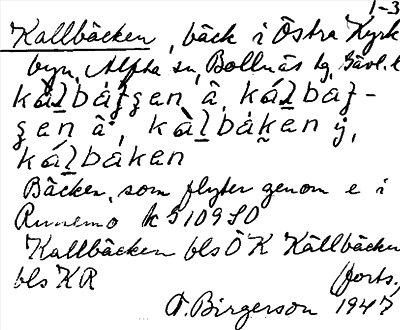 1-3
Kallbäcken, bäck i Östra Kyrk
byn, Alfta sn, Bollnäs tg, Gävl. l
kálbáʒʒen â, kálbaʒ-
ʒen â, kàlbáken ý,
kálbáken
Bäcken, som flyter genom e i
Runemo k S 109 SO
Kallbäcken bls Ö K Källbäcken
bls KR (forts.)
O. Birgerson 1947